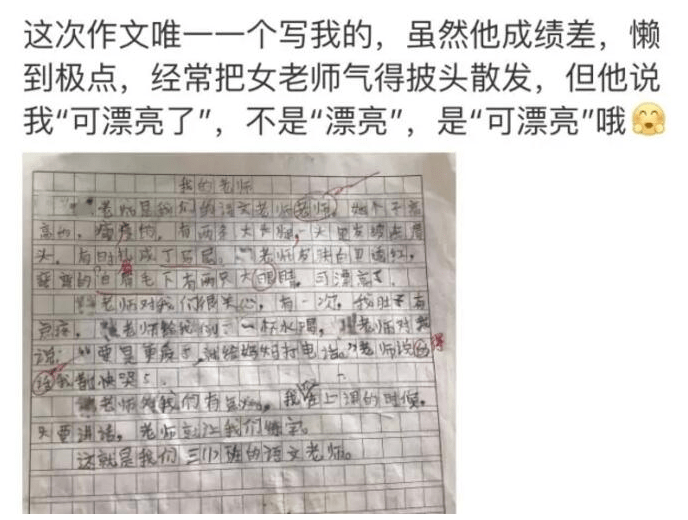 这次作文唯一一个写我的，虽然他成绩差，懒
到极点，经常把女老师气得披头散发，但他说
我“可漂亮了”，不是“漂亮”，是“可漂亮”哦
我的老师
老师是我们的语文老师老师。她个子高
高的，瘦瘦的，有两条大
头，有时扎成丁马尾。老师皮肤白里透红，
弯弯的眉毛下有两只大眼睛，可漂亮了。
老师对我们很关心，有一次，我肚子有
点疼，老师给我倒了一杯水喝，老师对我
说：“要是重疼了，就给妈妈打电话。”老师说的
话我都快哭了。
老师对我们有，我在上课的时候，
只要讲话，老师就让我们练字。
这就是我们三(1)班的语文老师。